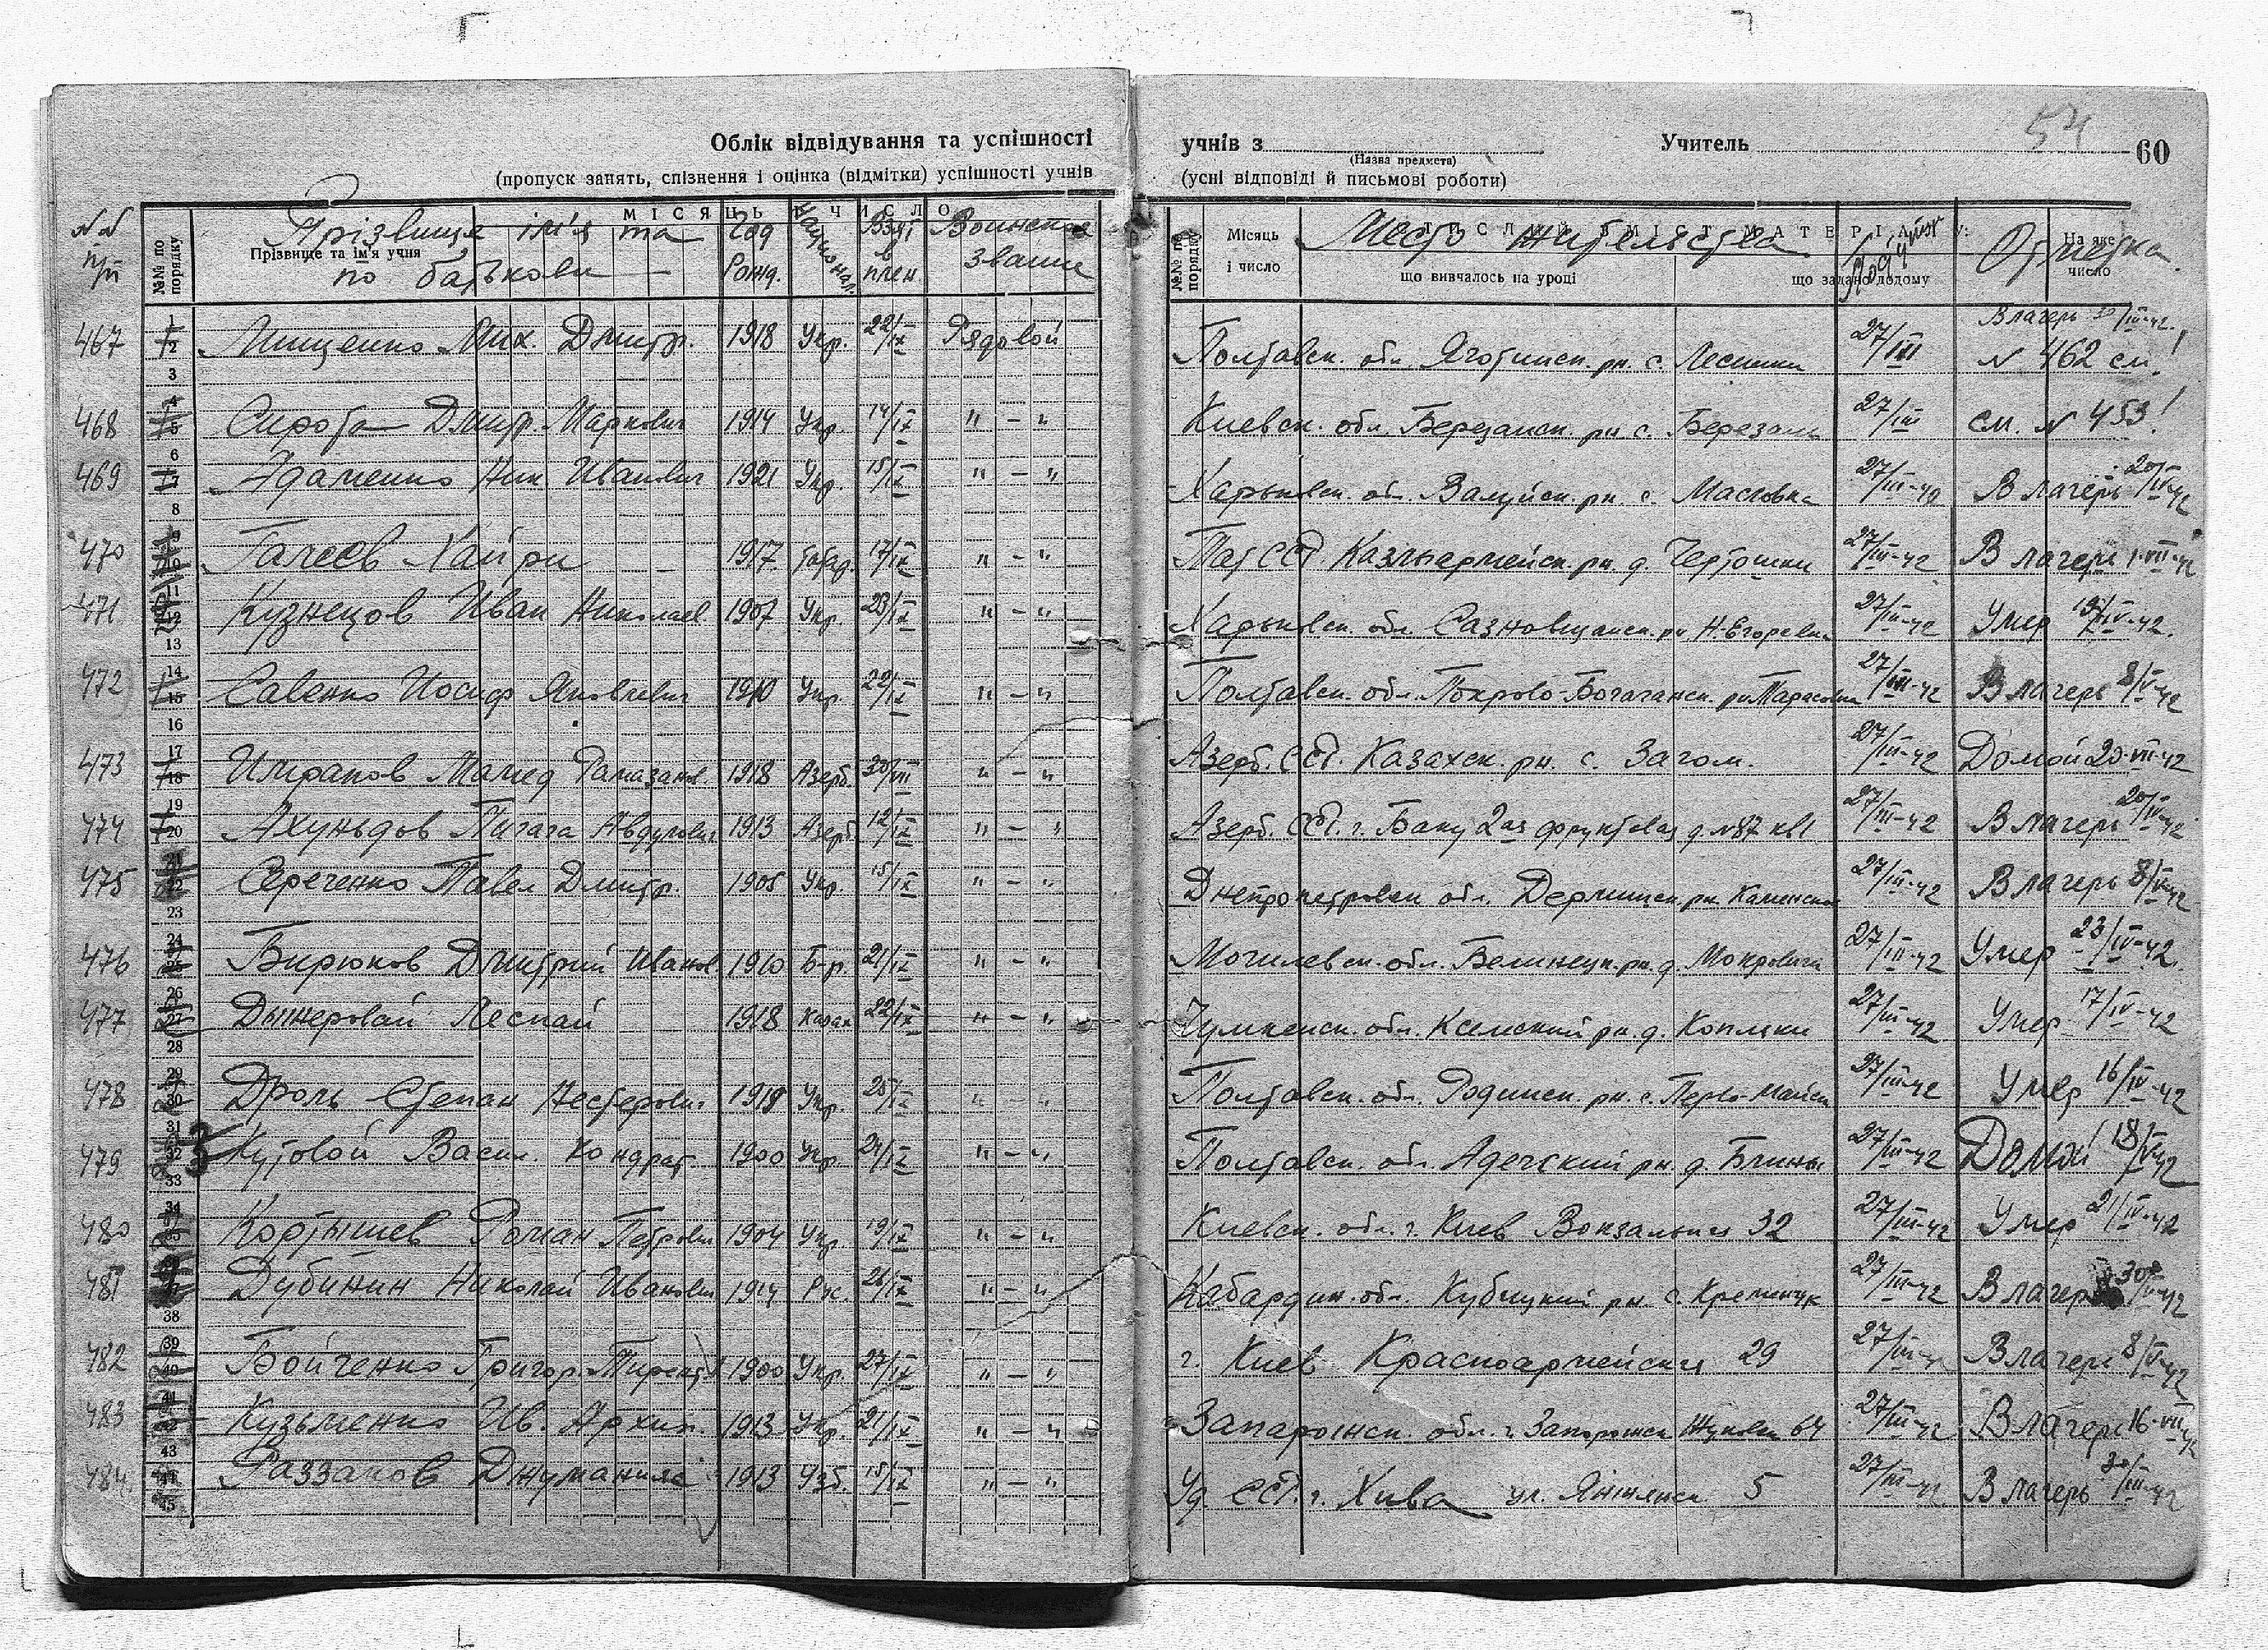 54
Облік відвідування та успішності учнів з Учитель 60
(Назва предмета)
(пропуск занять, спізнення і оцінка (відмітки) успішності учнів (усні відповіді й письмові роботи)
№№ п/п №№ по порядку Прізвище та ім'я учня МІСЯЦЬ ЧИСЛО
Прізвище ім'я та по батькови Год Рожд. Национал. Взят в плен Воинское звание
№№ по порядку Місяць і число що вивчалось на уроці що задано додому На яке число
Место жительства Отметка
467 Мищенко Мих. Дмитр. 1918 Укр. 22/IX Рядовой Полтавск. обл. Яготинск. рн. с. Лесники 27/III В лагерь /III-42. № 462 см!
468 Сирота Дмитр. Маркович 1914 Укр. 14/IX " - " Киевск. обл. Березанск. рн с. Березань 27/III см. № 453!
469 Адаменко Ник Иванович 1921 Укр. 15/IX " - " Харьковск. обл. Валуйск. рн с. Масловка 27/III-42 В лагерь 20/IV-42
470 Галеев Хайри 1917 татар. 17/IX " - " Тат ССР. Казылармейск. рн. д. 27/III-42 В лагерь 1-VII-42
471 Кузнецов Иван Николаев 1907 Укр. 23/IX " - " Харьковск. обл. рн Н-Егоревка 27/III-42 Умер 19/IV-42.
472 Савенко Иосиф Яковлевич 1910 Укр. 22/IX " - " Полтавск. обл. Покрово-Богачанск. рн Тарасовка 27/III-42 В лагерь 8/IV-42
473 Имранов Мамед Рамазанов. 1918 Азерб. 30/VII " - " Азерб. ССР. Казахск. рн. с. Загом. 27/III-42 Домой 20-VII-42
474 Ахундов Авдулович 1913 Азерб. 12/IX " - " Азерб. ССР. г. Баку 2ая фруктовая д. №87 кв1 27/III-42 В лагерь 20/IV-42
475 Середенко Павел Дмитр. 1905 Укр. 15/IX " - " Днепропетровск обл. рн. Каменское 27/III-42 В лагерь 8/IV-42
476 Бирюков Дмитрий Иванов. 1910 Б-р. 21/IX " - " Могилевск. обл. Белинецк. рн. д. Мокровичи 27/III-42 Умер 23/IV-42.
477 Дынеровай Леспай 1918 Казах 22/IX " - " Чумкенск. обл. рн. д. 27/III-42 Умер 17/IV-42
478 Дроль Степан Нестерович 1918 Укр. 25/IX " - " Полтавск. обл. рн. с. Перво-Майск 27/III-42 Умер 16/IV-42
479 Кутовой Васил. Кондрат. 1900 Укр. 24/IX " - " Полтавск. обл. рн д. Блины 27/III-42 Домой 18/IV-42
480 Кортышев Роман Петрович 1904 Укр. 19/IX " - " Киевск. обл. г. Киев Вокзальная 32 27/III-42 Умер 21/IV-42
481 Дубинин Николай Иванович 1914 Рус. 26/IX " - " Кабардин. обл. рн. с. Кременчук 27/III-42 В лагерь
482 Бойченко Григор. 1900 Укр. 27/IX " - " г. Киев Красноармейская 29 27/III-42 В лагерь 8/IV-42
483 Кузьменко Ив. Архип. 1913 Укр. 21/IX " - " Запарожск. обл. г. Запорожск 64 27/III-42 В лагерь 16-VII-42
484. Раззаков 1913 Узб. 15/IX " - " Уз. ССР. г. Хива ул. 5 27/III-42 В лагерь 30/III-42